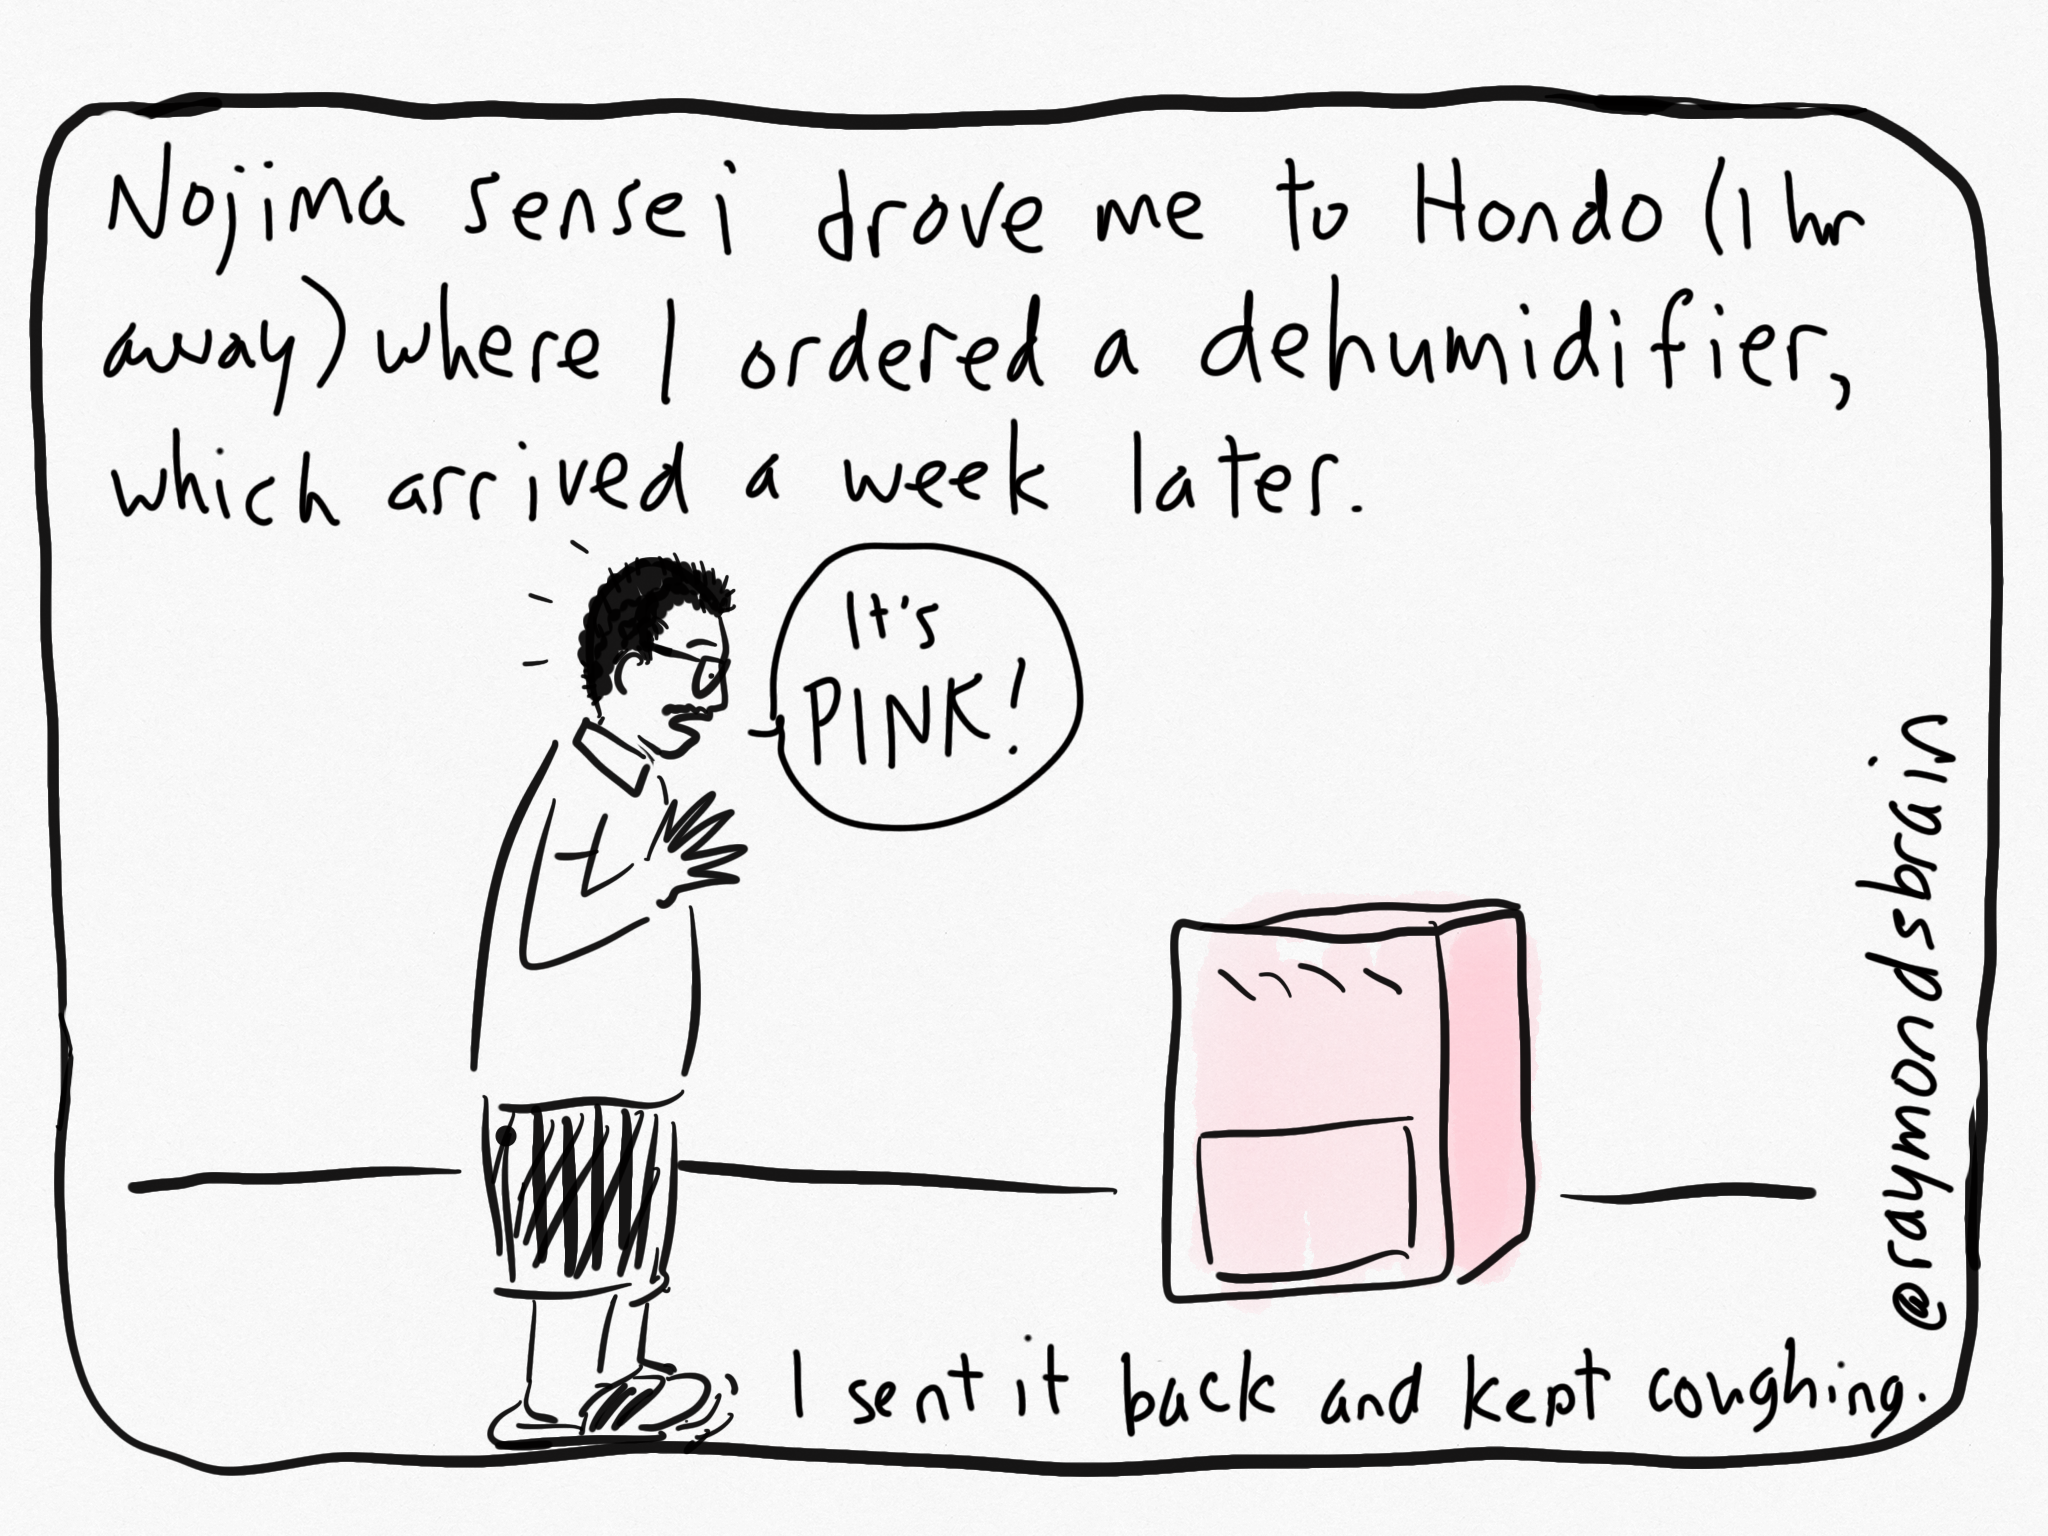 Nojima sensei drove me to Hondo (1 hr
away) where I ordered a dehumidifier,
which arrived a week later.
It's
PINK!
I sent it back and kept coughing.
@raymondsbrain